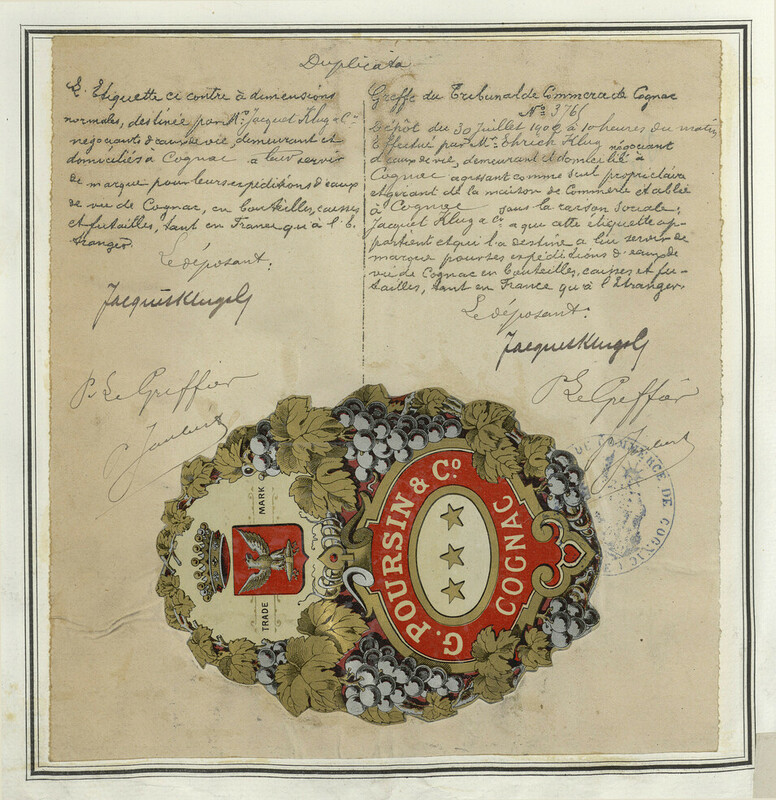 Duplicata
L'Etiquette ci contre à dimensions
normales, destinée par Mr. Jacquet Klug & Cie
négociants d'eaux de vie, demeurant et
domiciliés à Cognac a leur servir
de marque pour leurs expéditions d'eaux
de vie de Cognac, en bouteilles, caisses
et futailles, tant en France qu'à l'E-
tranger.
Le déposant:
P. Le Greffier
Greffe du Tribunal de Commerce de Cognac
No. 3765
Dépôt du 30 Juillet à 10 heures du matin
Effectué par Mr. Klug négociant
d'eaux de vie, demeurant et domicilié à
Cognac agissant comme seul propriétaire
et gérant de la maison de Commerce établie
à Cognac sous la raison sociale:
Jacquet Klug & Co. a que cette étiquette ap-
partient et qui l'a destine a lui servir de
marque pour ses expéditions d'eaux de
vie de Cognac en bouteilles, caisses et fu-
tailles, tant en France qu'à l'Etranger.
Le déposant:
P. Le Greffier
DE COMMERCE DE COGNAC
TRADE MARK
G. POURSIN & Co.
COGNAC